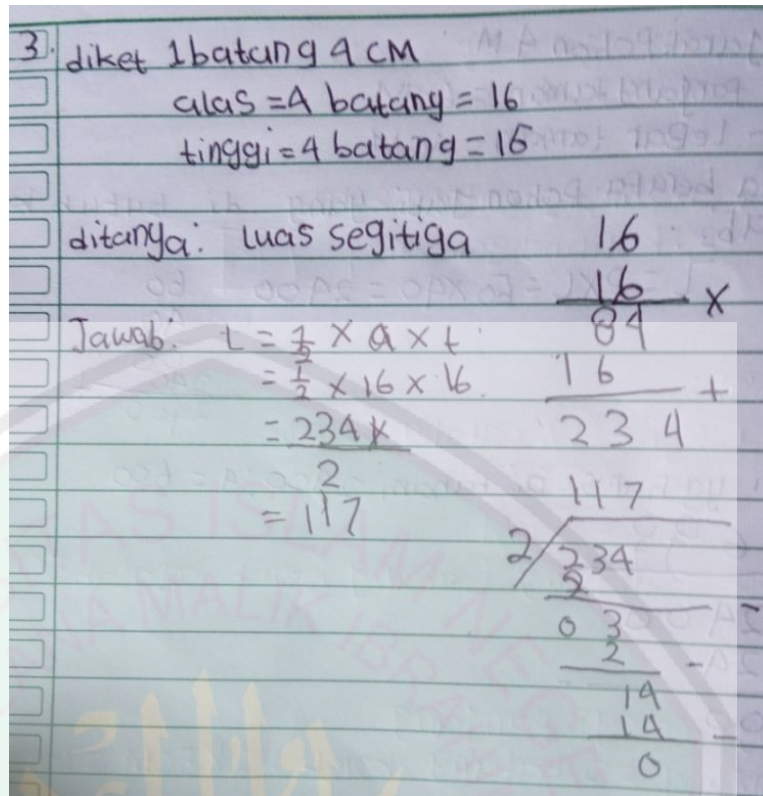 3. diket 1 batang 4 CM
alas = 4 batang = 16
tinggi = 4 batang = 16
ditanya: luas segitiga
Jawab: L = 1/2 × a × t
= 1/2 × 16 × 16
= 234/2
= 117
16
16 ×
84
16 +
234
117
2/234
2
03
2 -
14
14 -
0
ISLAM NEG
MALIK IBRA